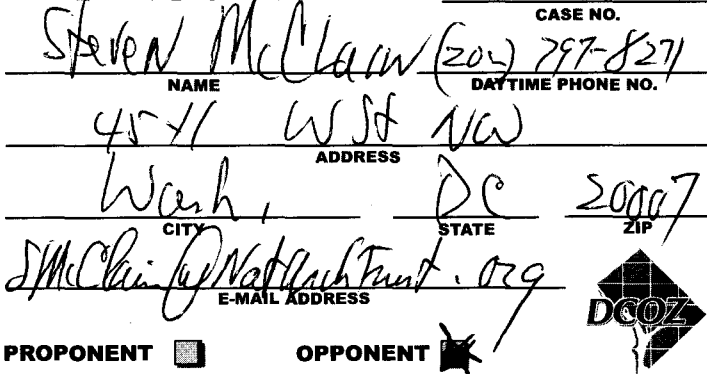 CASE NO.
Steven McClain (202) 797-8271
NAME DAYTIME PHONE NO.
4541 W St NW
ADDRESS
Wash, DC 20007
CITY STATE ZIP
SMcClain@NatArchTrust.org
E-MAIL ADDRESS
DCOZ
PROPONENT OPPONENT